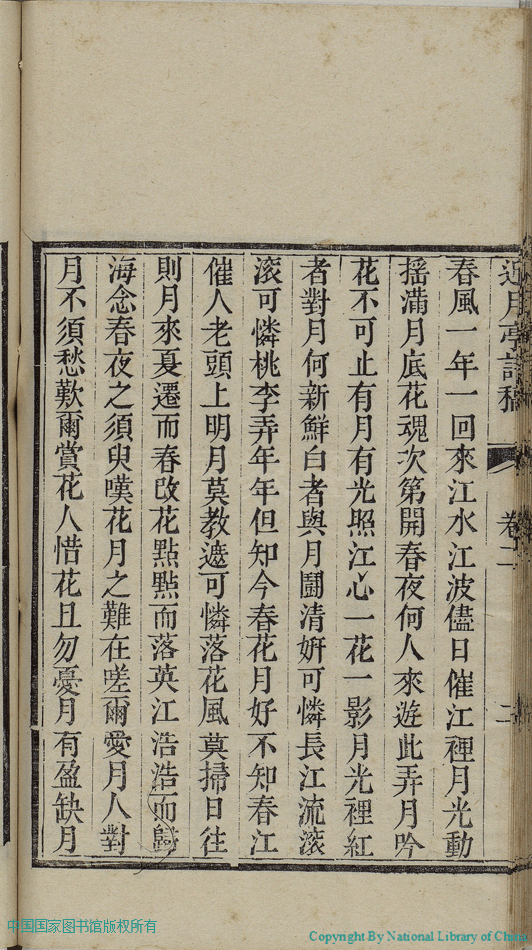 近月亭詩稿 卷二 二
春風一年一回來江水江波儘日催江裡月光動
揺滿月底花魂次第開春夜何人來遊此弄月吟
花不可止有月有光照江心一花一影月光裡紅
者對月何新鮮白者與月鬬清妍可憐長江流滾
滾可憐桃李弄年年但知今春花月好不知春江
催人老頭上明月莫教遮可憐落花風莫掃日往
則月來夏遷而春改花點點而落英江浩浩而歸
海念春夜之須臾嘆花月之難在嗟爾愛月人對
月不須愁歎爾賞花人惜花且勿憂月有盈缺月
中国国家图书馆版权所有
Copyright By National Library of China